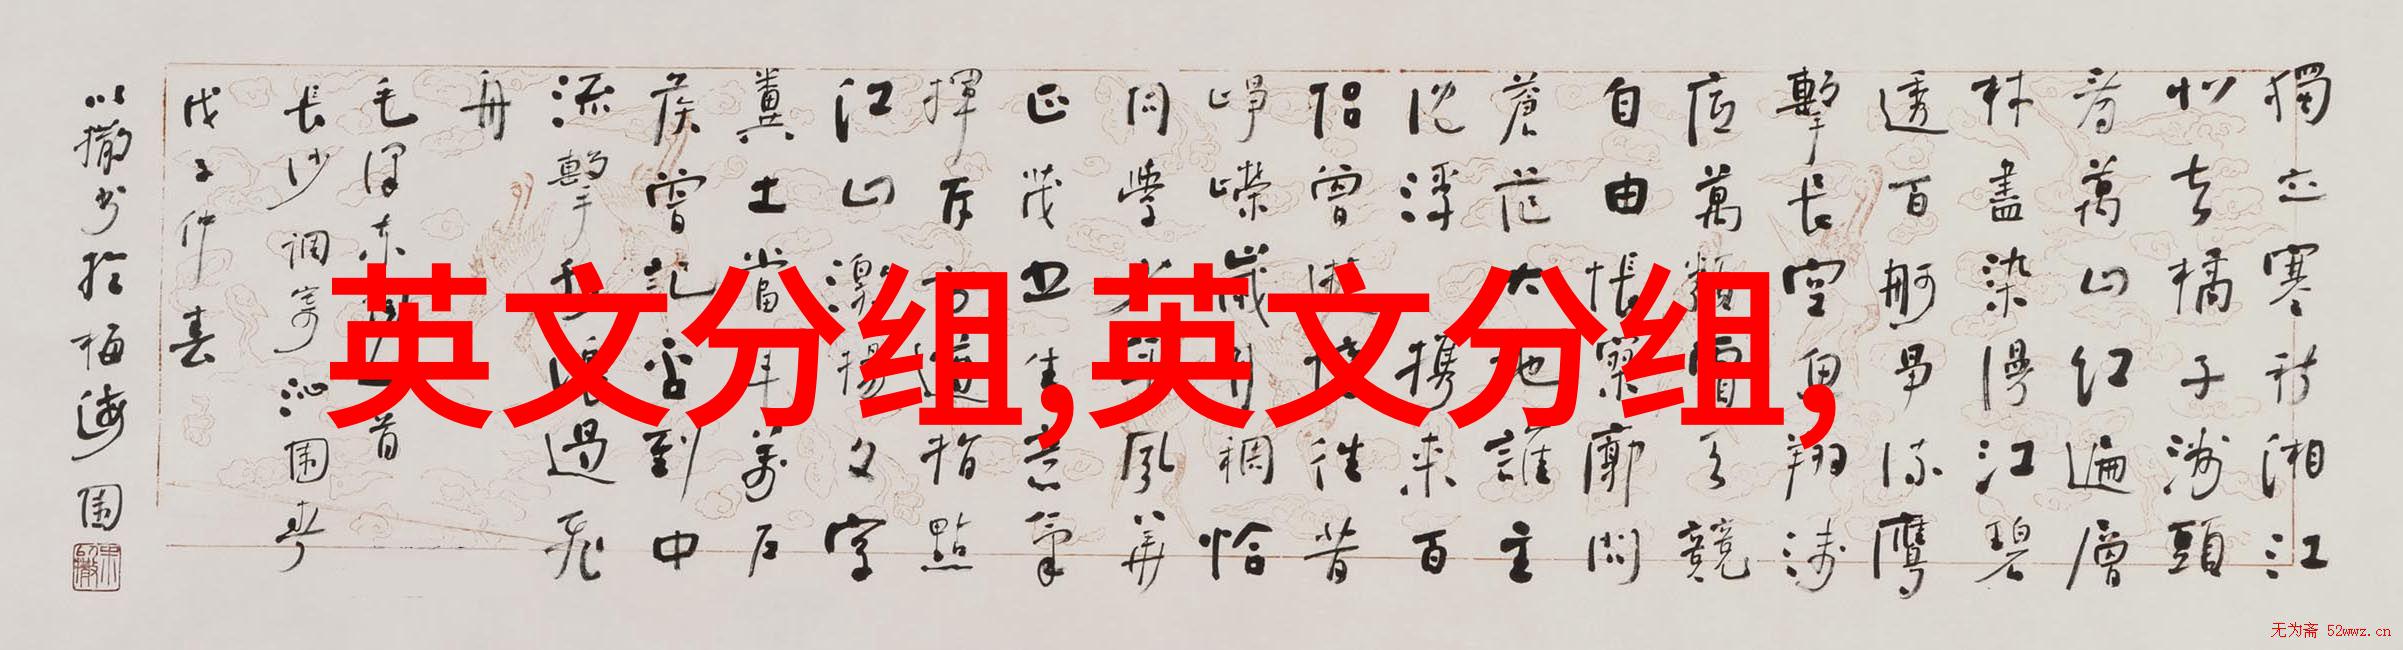 獨立寒秋湘江
北去橘子洲頭
看萬山红遍層
林盡染漫江碧
透百舸爭流鷹
擊長空魚翔淺
底萬類霜天競
自由悵寥廓問
蒼茫大地誰主
沈浮攜来百
侣曾憶往昔
崢嶸歲月稠恰
同學少年風華
正茂书生意氣
揮斥方遒指點
江山激揚文字
糞土當年萬户
侯曾記否到中
流擊水浪遏飛
舟
毛澤东首
長沙調寄沁園春
戊子仲春
以撒书於梅海園
英文分组,英文分组,
无为斋 52wwz.cn